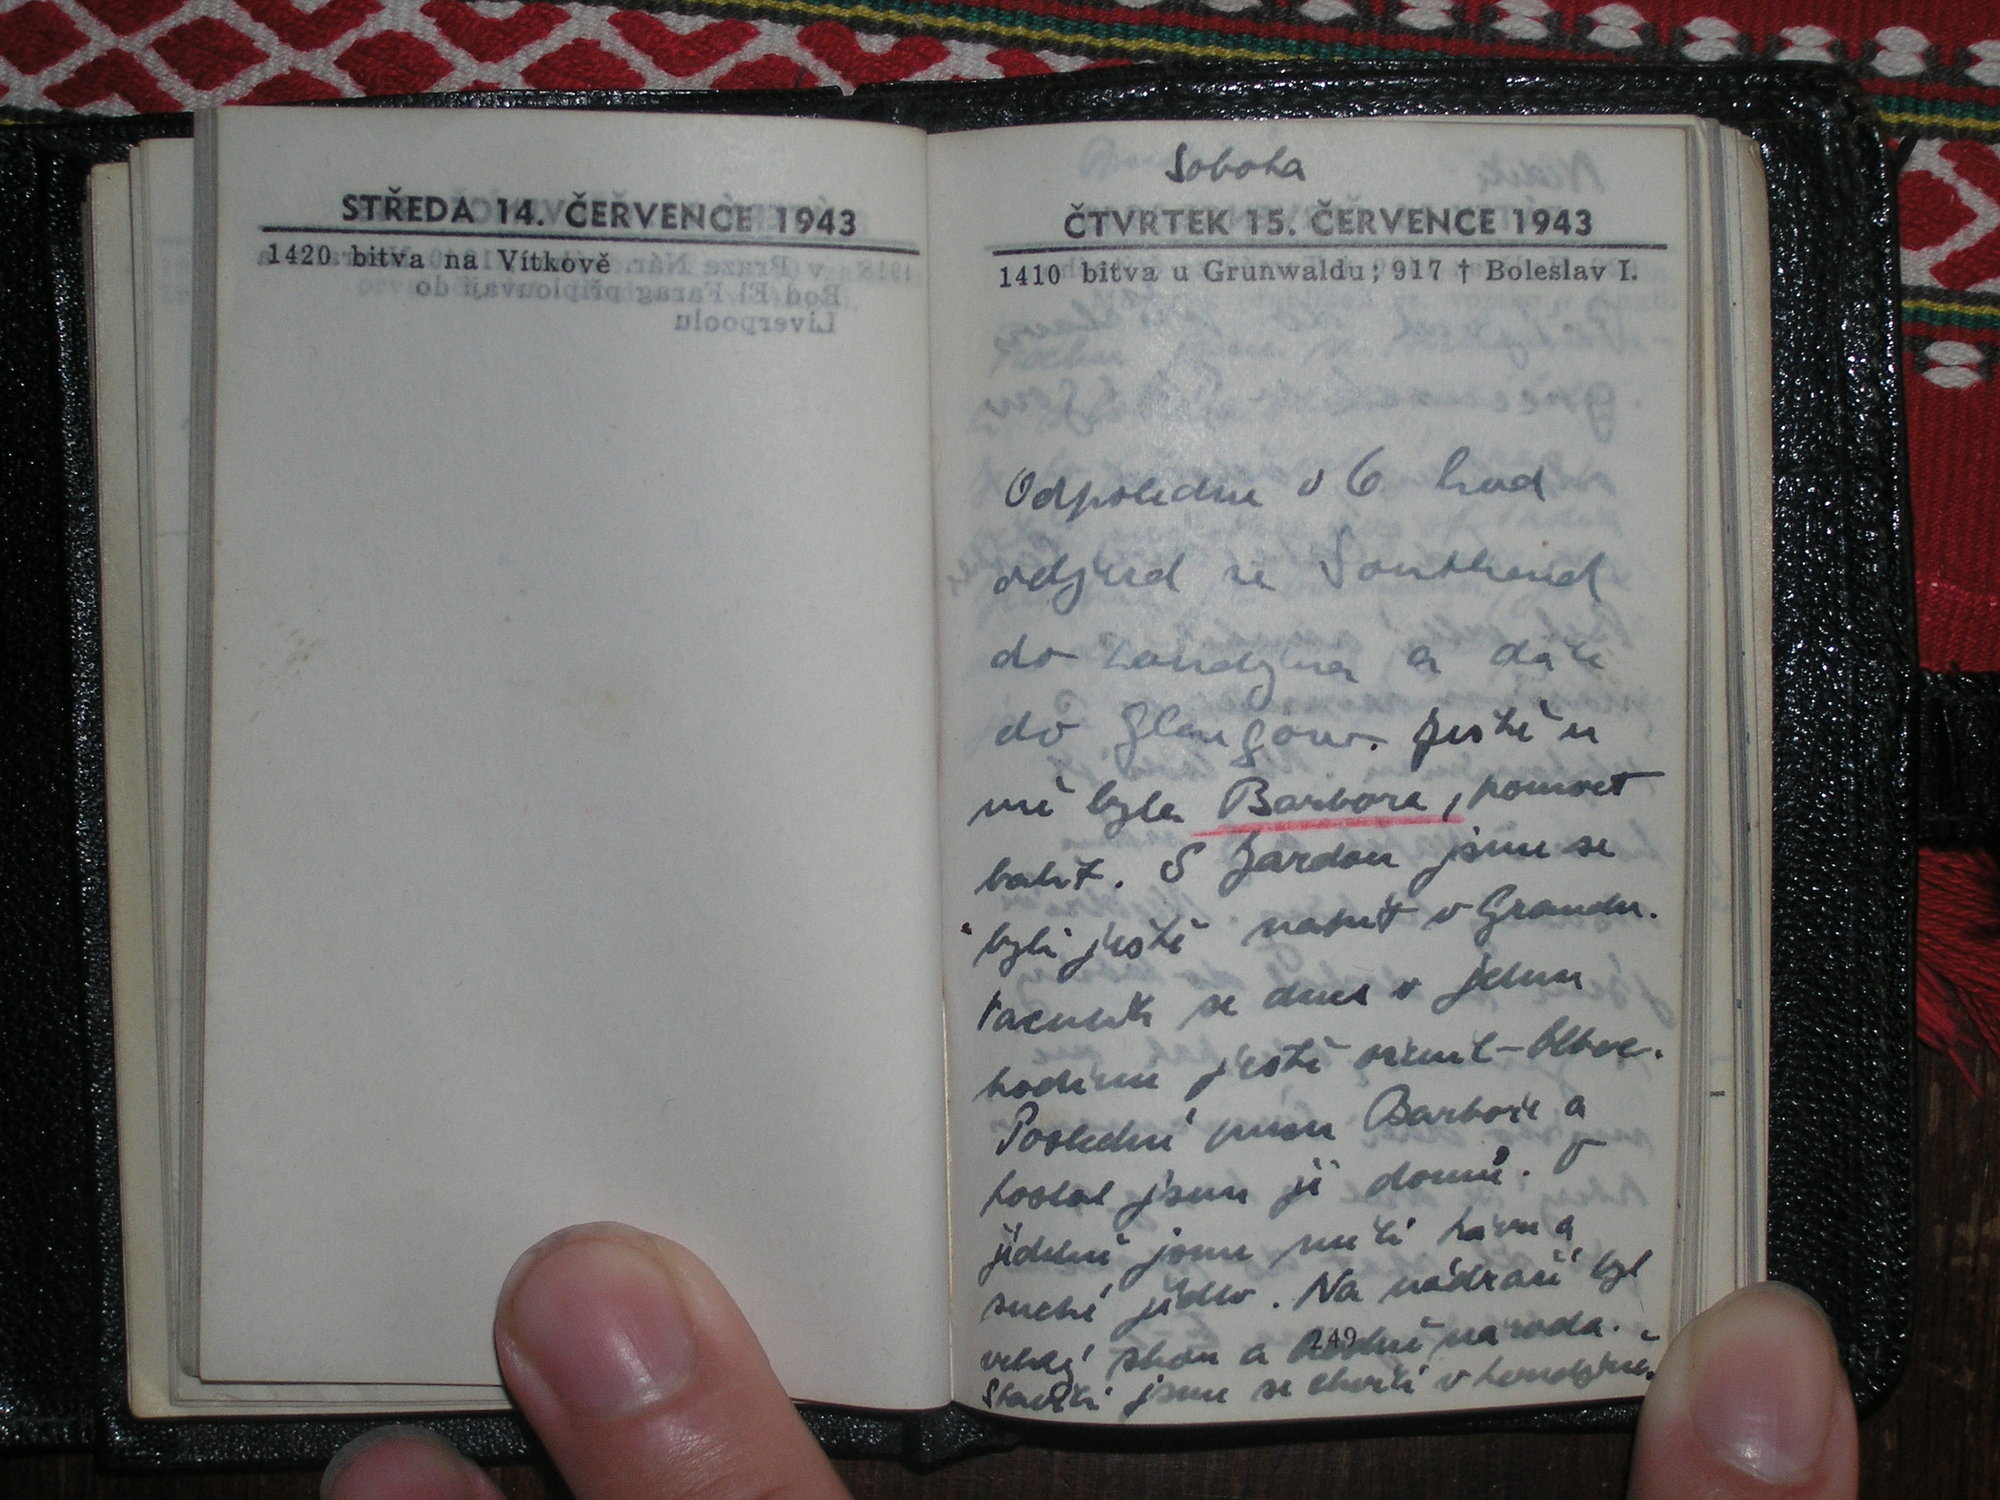 STŘEDA 14. ČERVENCE 1943
1420 bitva na Vítkově
Sobota
ČTVRTEK 15. ČERVENCE 1943
1410 bitva u Grunwaldu; 917 † Boleslav I.
Odpoledne v 6 hod
odjezd ze Southend
do Londýna a dále
do Glasgow. Ještě u
mě byla Barbora, pomoct
balit. S Jardou jsme se
byli ještě v Grandu.
se dnes v jednu
hodinu ještě
Poslední Barboře a
poslal jsem ji domů. V
jídelně jsme měli kávu a
suché jídlo. Na nádraží byl
velký shon a hodně národa.
249
jsme se v Londýně.